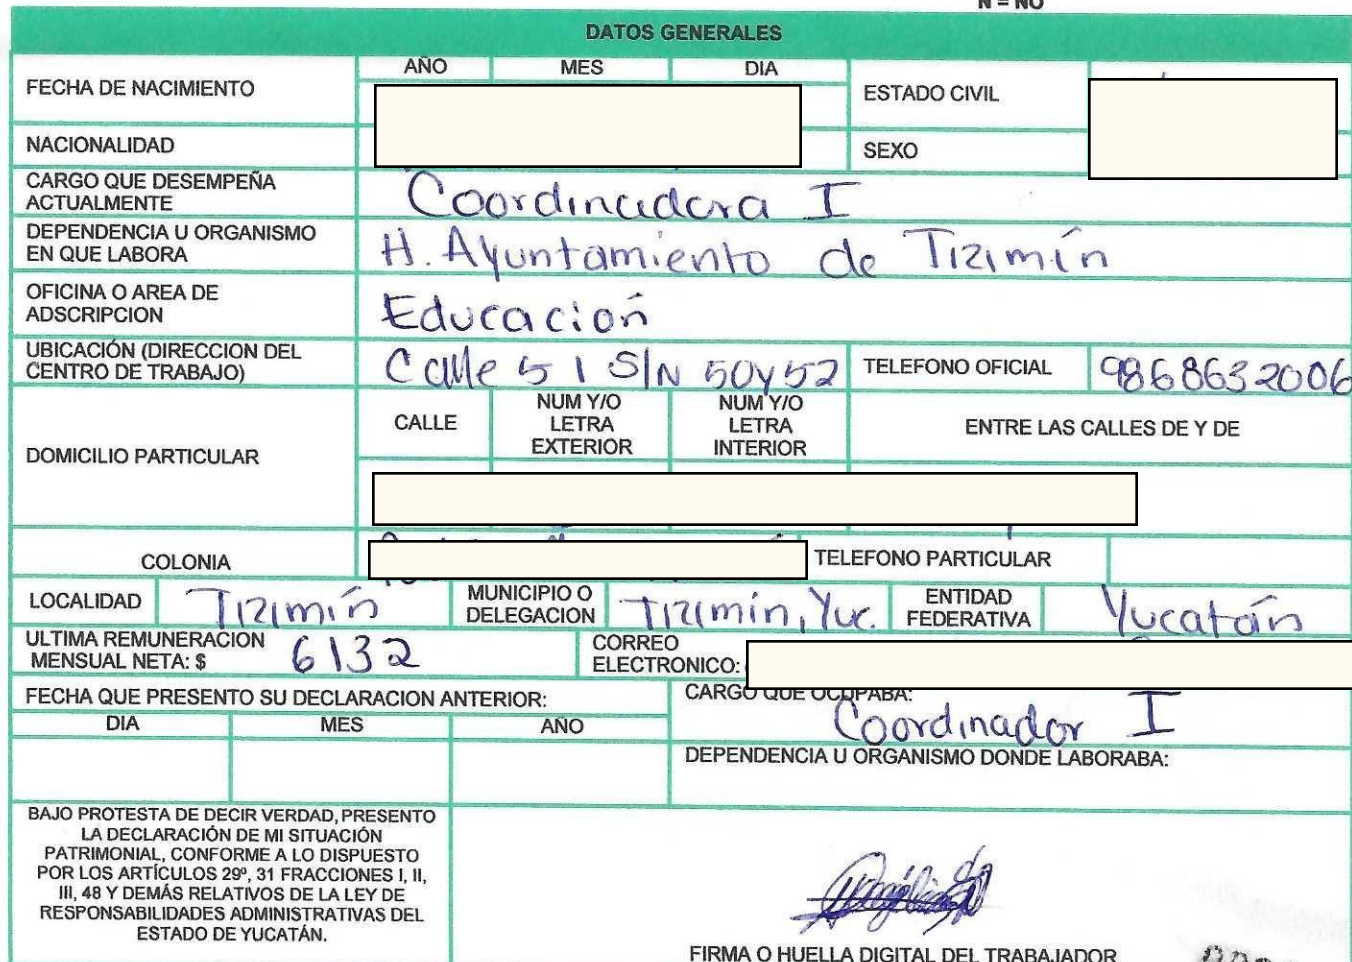 N = NO
DATOS GENERALES
FECHA DE NACIMIENTO
AÑO MES DIA
ESTADO CIVIL
NACIONALIDAD
SEXO
CARGO QUE DESEMPEÑA
ACTUALMENTE
Coordinadora I
DEPENDENCIA U ORGANISMO
EN QUE LABORA
H. Ayuntamiento de Tizimín
OFICINA O AREA DE
ADSCRIPCION
Educación
UBICACIÓN (DIRECCION DEL
CENTRO DE TRABAJO)
Calle 51 S/N 50y52
TELEFONO OFICIAL 9868632006
DOMICILIO PARTICULAR
CALLE
NUM Y/O
LETRA
EXTERIOR
NUM Y/O
LETRA
INTERIOR
ENTRE LAS CALLES DE Y DE
COLONIA
TELEFONO PARTICULAR
LOCALIDAD Tizimín
MUNICIPIO O
DELEGACION
Tizimín, Yuc.
ENTIDAD
FEDERATIVA
Yucatán
ULTIMA REMUNERACION
MENSUAL NETA: $ 6132
CORREO
ELECTRONICO:
FECHA QUE PRESENTO SU DECLARACION ANTERIOR:
DIA MES AÑO
CARGO QUE OCUPABA:
Coordinador I
DEPENDENCIA U ORGANISMO DONDE LABORABA:
BAJO PROTESTA DE DECIR VERDAD, PRESENTO
LA DECLARACIÓN DE MI SITUACIÓN
PATRIMONIAL, CONFORME A LO DISPUESTO
POR LOS ARTÍCULOS 29º, 31 FRACCIONES I, II,
III, 48 Y DEMÁS RELATIVOS DE LA LEY DE
RESPONSABILIDADES ADMINISTRATIVAS DEL
ESTADO DE YUCATÁN.
FIRMA O HUELLA DIGITAL DEL TRABAJADOR